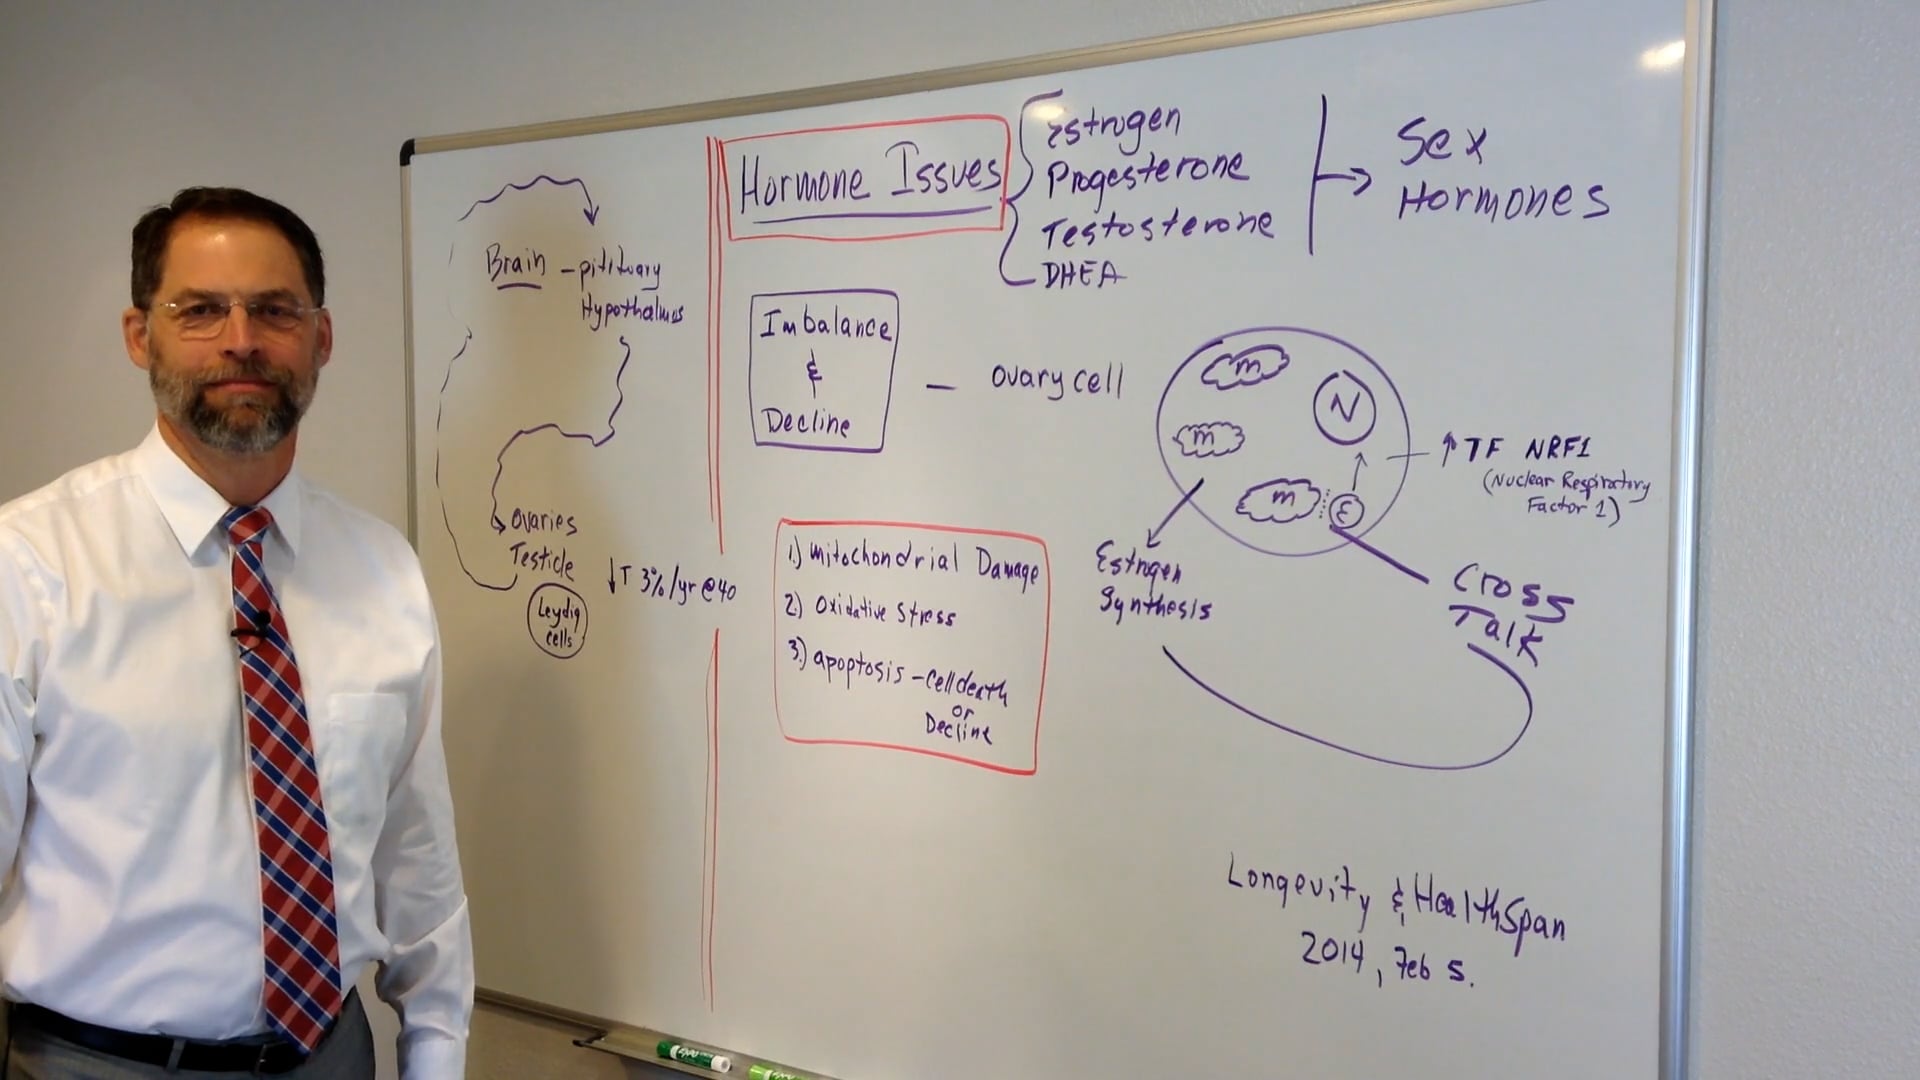 Brain - pitituary
Hypothalmus
Ovaries
Testicle
Leydig
cells
↓T 3%/yr @40
Hormone Issues
Estrogen
Progesterone
Testosterone
DHEA
Sex
Hormones
Imbalance
&
Decline
- ovary cell
m
m
m
N
E
↑ TF NRF1
(Nuclear Respiratory
Factor 1)
Estrogen
Synthesis
Cross
Talk
1.) Mitochondrial Damage
2.) Oxidative Stress
3.) apoptosis - cell death
or
Decline
Longevity & HealthSpan
2014, Feb 5.
EXPO